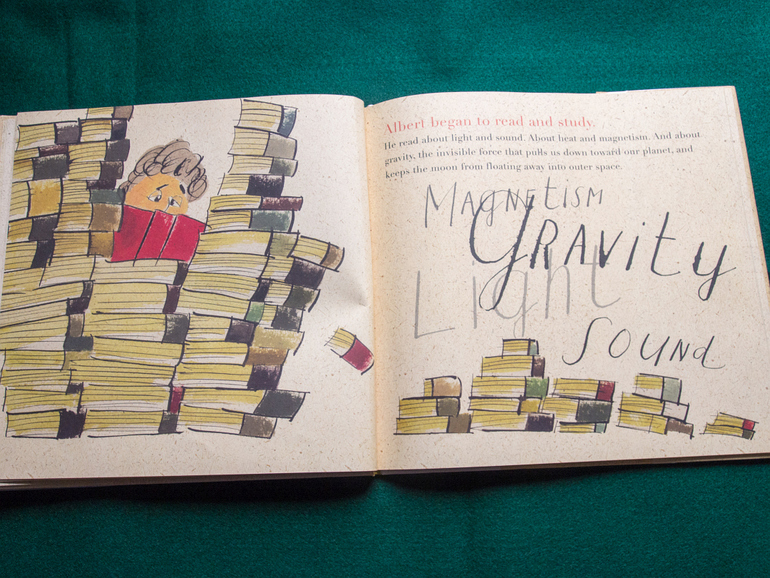 Albert began to read and study.
He read about light and sound. About heat and magnetism. And about
gravity, the invisible force that pulls us down toward our planet, and
keeps the moon from floating away into outer space.
MAGNETISM
GRAVITY
Light
SOUND